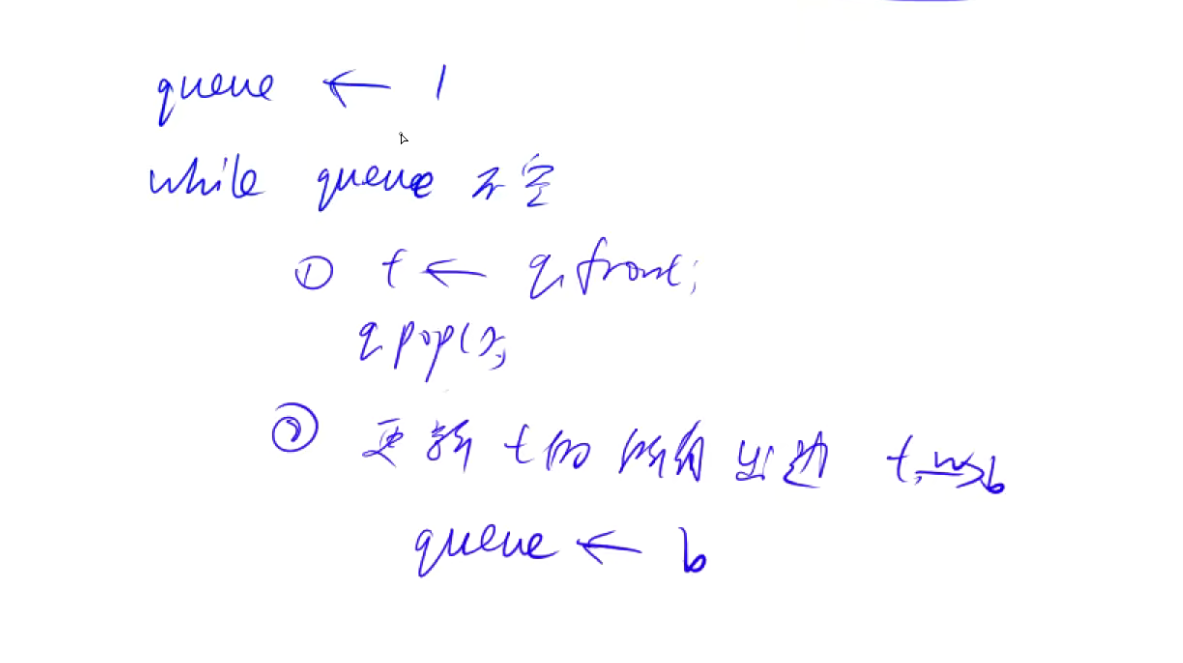 queue ← 1
while queue 不空
① t ← q.front;
q.pop();
② 更新 t的 所有 出边 t →w b
queue ← b